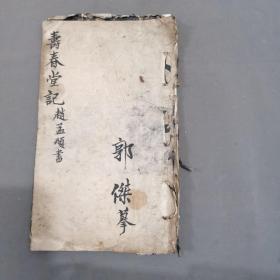 郭傑摹
壽春堂記
趙孟頫書